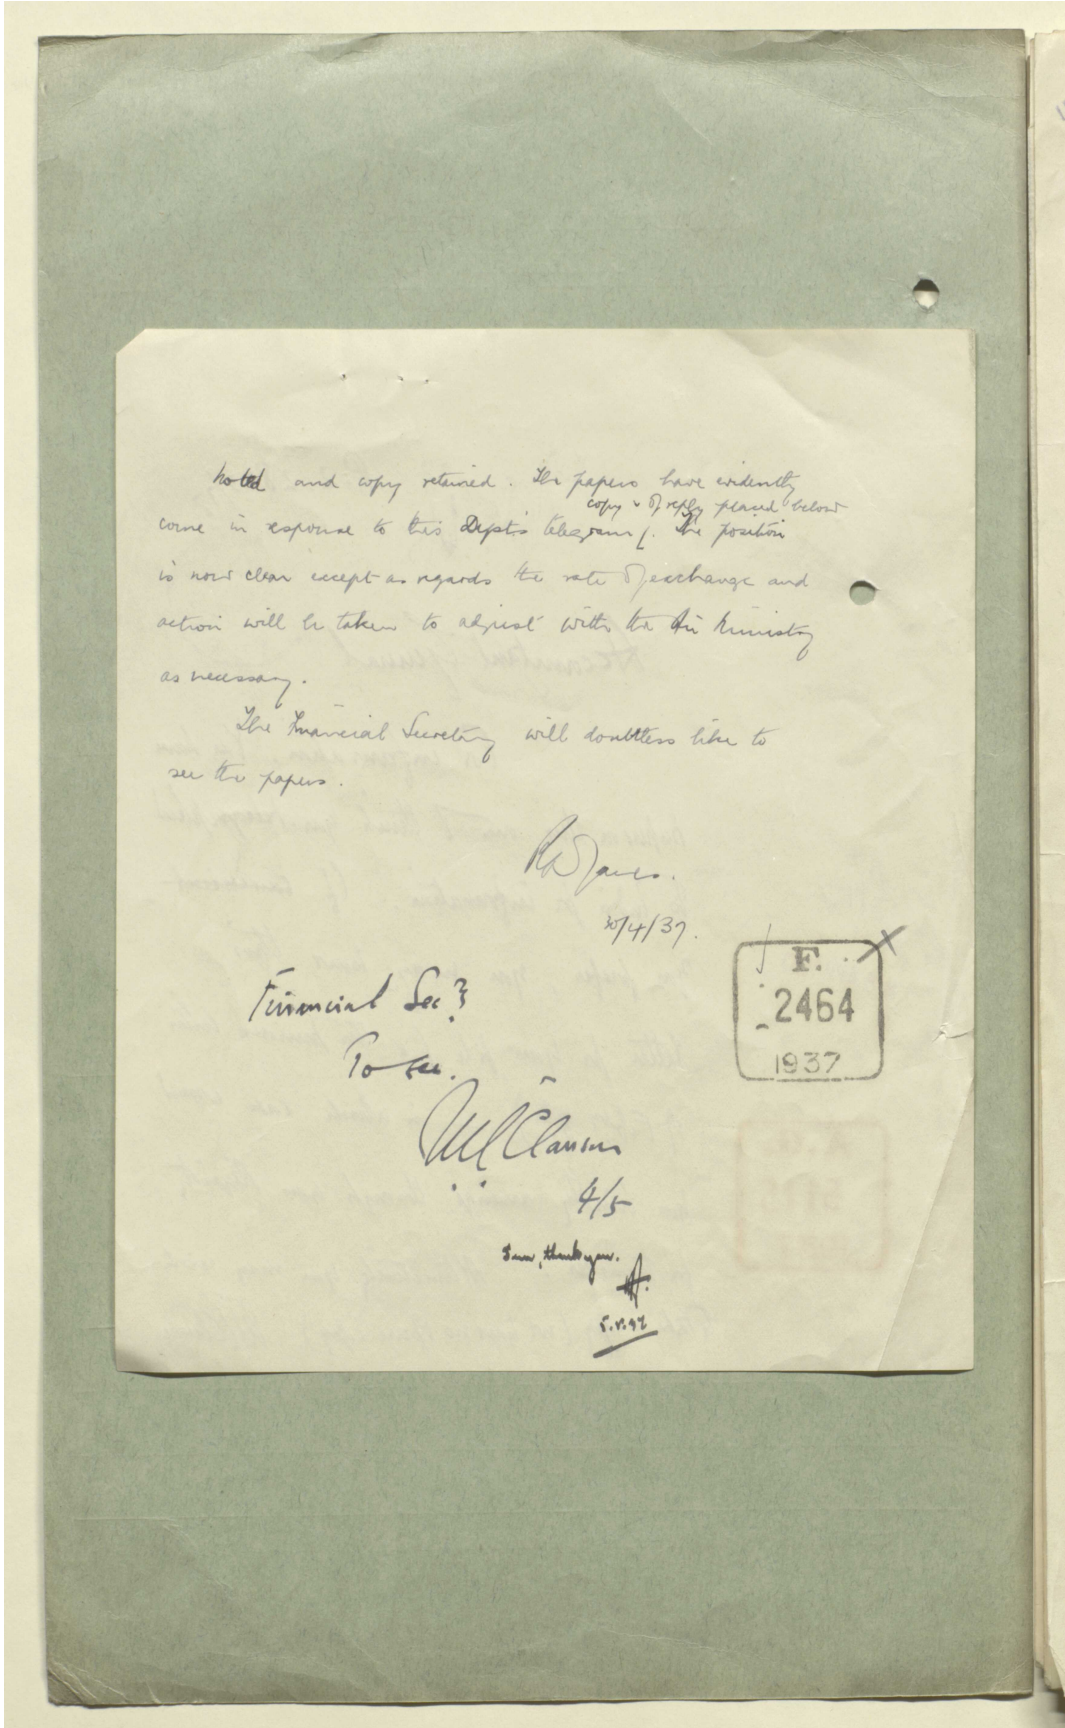 Noted and copy retained. The papers have evidently
copy & of reply placed below
come in response to this Dept's telegram /. The position
is now clear except as regards the rate of exchange and
action will be taken to adjust with the Air Ministry
as necessary.
The Financial Secretary will doubtless like to
see the papers.
30/4/37.
F.
2464
1937
Financial Sec?
To see.
Clauson
4/5
Seen, thank you.
5.5.37